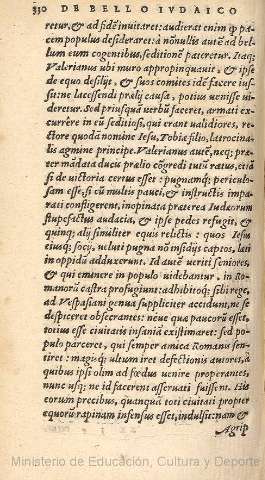 530 DE BELLO IVDAICO
retur, & ad fidē inuitaret: audierat enim ꝙ pa-
cem populus desideraret: à nōnullis autē ad bel-
lum eum cogentibus, seditionē pateretur. Itaq;
Valerianus ubi muro appropinquauit, & ipse
de equo desilijt, & suos comites idē facere ius-
sit: ne lacessendi prelij causa, potius uenisse ui-
deretur. Sed priusquā uerbū faceret, armati ex-
currēre in eū seditiosi, qui erant ualidiores, re-
ctore quodā nomine Iesu, Tobiæ filio, latrocina-
lis agmine principe. Valerianus autē, neq; præ-
ter mādatū ducis prælio cōgredi tutū ratus, etiā
si de uictoria certus esset: pugnamq́; periculo-
sam esse, si cū multis pauci, & instructis impa-
rati confligerent, inopinata præterea Iudæorum
stupefactus audacia, & ipse pedes refugit, &
quinq; alij similiter equis relictis: quos Iesus
eiusq́; socij, ueluti pugna nō insidijs captos, læti
in oppidū adduxerunt. Id autē ueriti seniores,
& qui eminere in populo uidebantur, in Ro-
manorū castra profugiunt: adhibitoq́; sibi rege,
ad Vespasiani genua suppliciter accidunt, ne se
despiceret obsecrantes: neue qua paucorū esset,
totius esse ciuitatis insaniā existimaret: sed po-
pulo parceret, qui semper amica Romanis sen-
tiret: magisq́; ultum iret defectionis autores, à
quibus ipsi olim ad fœdus uenire properantes,
nunc usq; ne id facerent asseruati fuissent. His
eorum precibus, quanquā toti ciuitati propter
equorū rapinam infensus esset, indulsit: nam &
Agrip
Ministerio de Educación, Cultura y Deporte